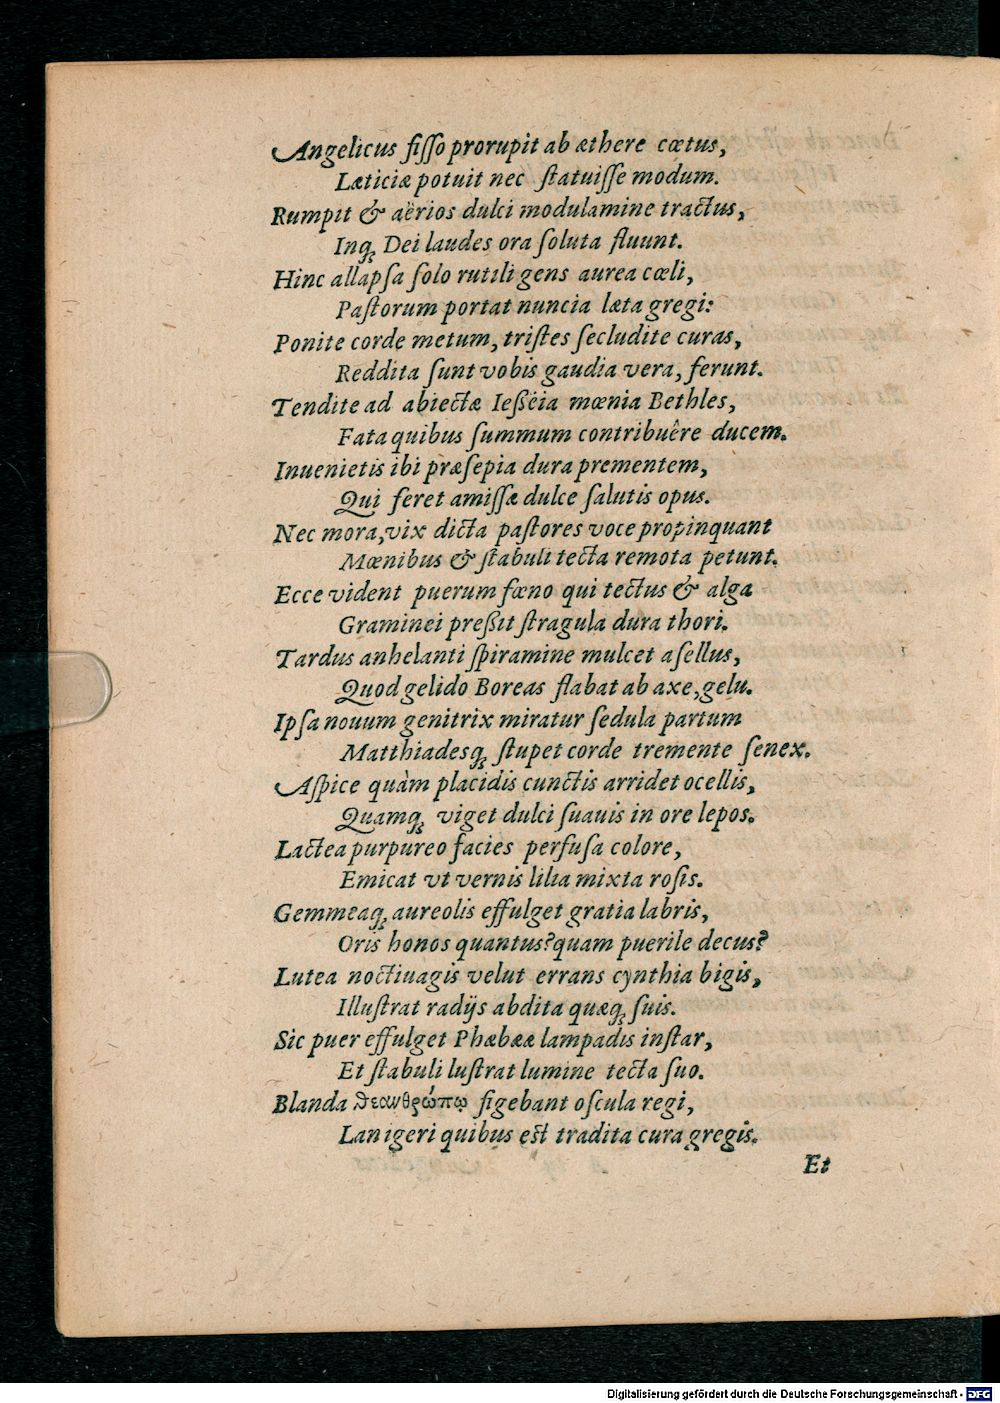 Angelicus fiſſo prorupit ab æthere cœtus,
Læticiæ potuit nec ſtatuiſſe modum.
Rumpit & aërios dulci modulamine tractus,
Inq; Dei laudes ora ſoluta fluunt.
Hinc allapſa ſolo rutili gens aurea cœli,
Paſtorum portat nuncia læta gregi:
Ponite corde metum, triſtes ſecludite curas,
Reddita ſunt vobis gaudia vera, ferunt.
Tendite ad abiectæ Ießéia mœnia Bethles,
Fata quibus ſummum contribuêre ducem.
Inuenietis ibi præſepia dura prementem,
Qui feret amiſſæ dulce ſalutis opus.
Nec mora, vix dicta paſtores voce propinquant
Mœnibus & ſtabuli tecta remota petunt.
Ecce vident puerum fœno qui tectus & alga
Graminei preßit ſtragula dura thori.
Tardus anhelanti ſpiramine mulcet aſellus,
Quod gelido Boreas flabat ab axe, gelu.
Ipſa nouum genitrix miratur ſedula partum
Matthiadesq; ſtupet corde tremente ſenex.
Aſpice quàm placidis cunctis arridet ocellis,
Quamq; viget dulci ſuauis in ore lepos.
Lactea purpureo facies perfuſa colore,
Emicat vt vernis lilia mixta roſis.
Gemmeaq; aureolis effulget gratia labris,
Oris honos quantus? quam puerile decus?
Lutea noctiuagis velut errans cynthia bigis,
Illuſtrat radijs abdita quæq; ſuis.
Sic puer effulget Phæbææ lampadis inſtar,
Et ſtabuli luſtrat lumine tecta ſuo.
Blanda θεανθρώπῳ figebant oſcula regi,
Lanigeri quibus eſt tradita cura gregis.
Et
Digitalisierung gefördert durch die Deutsche Forschungsgemeinschaft - DFG